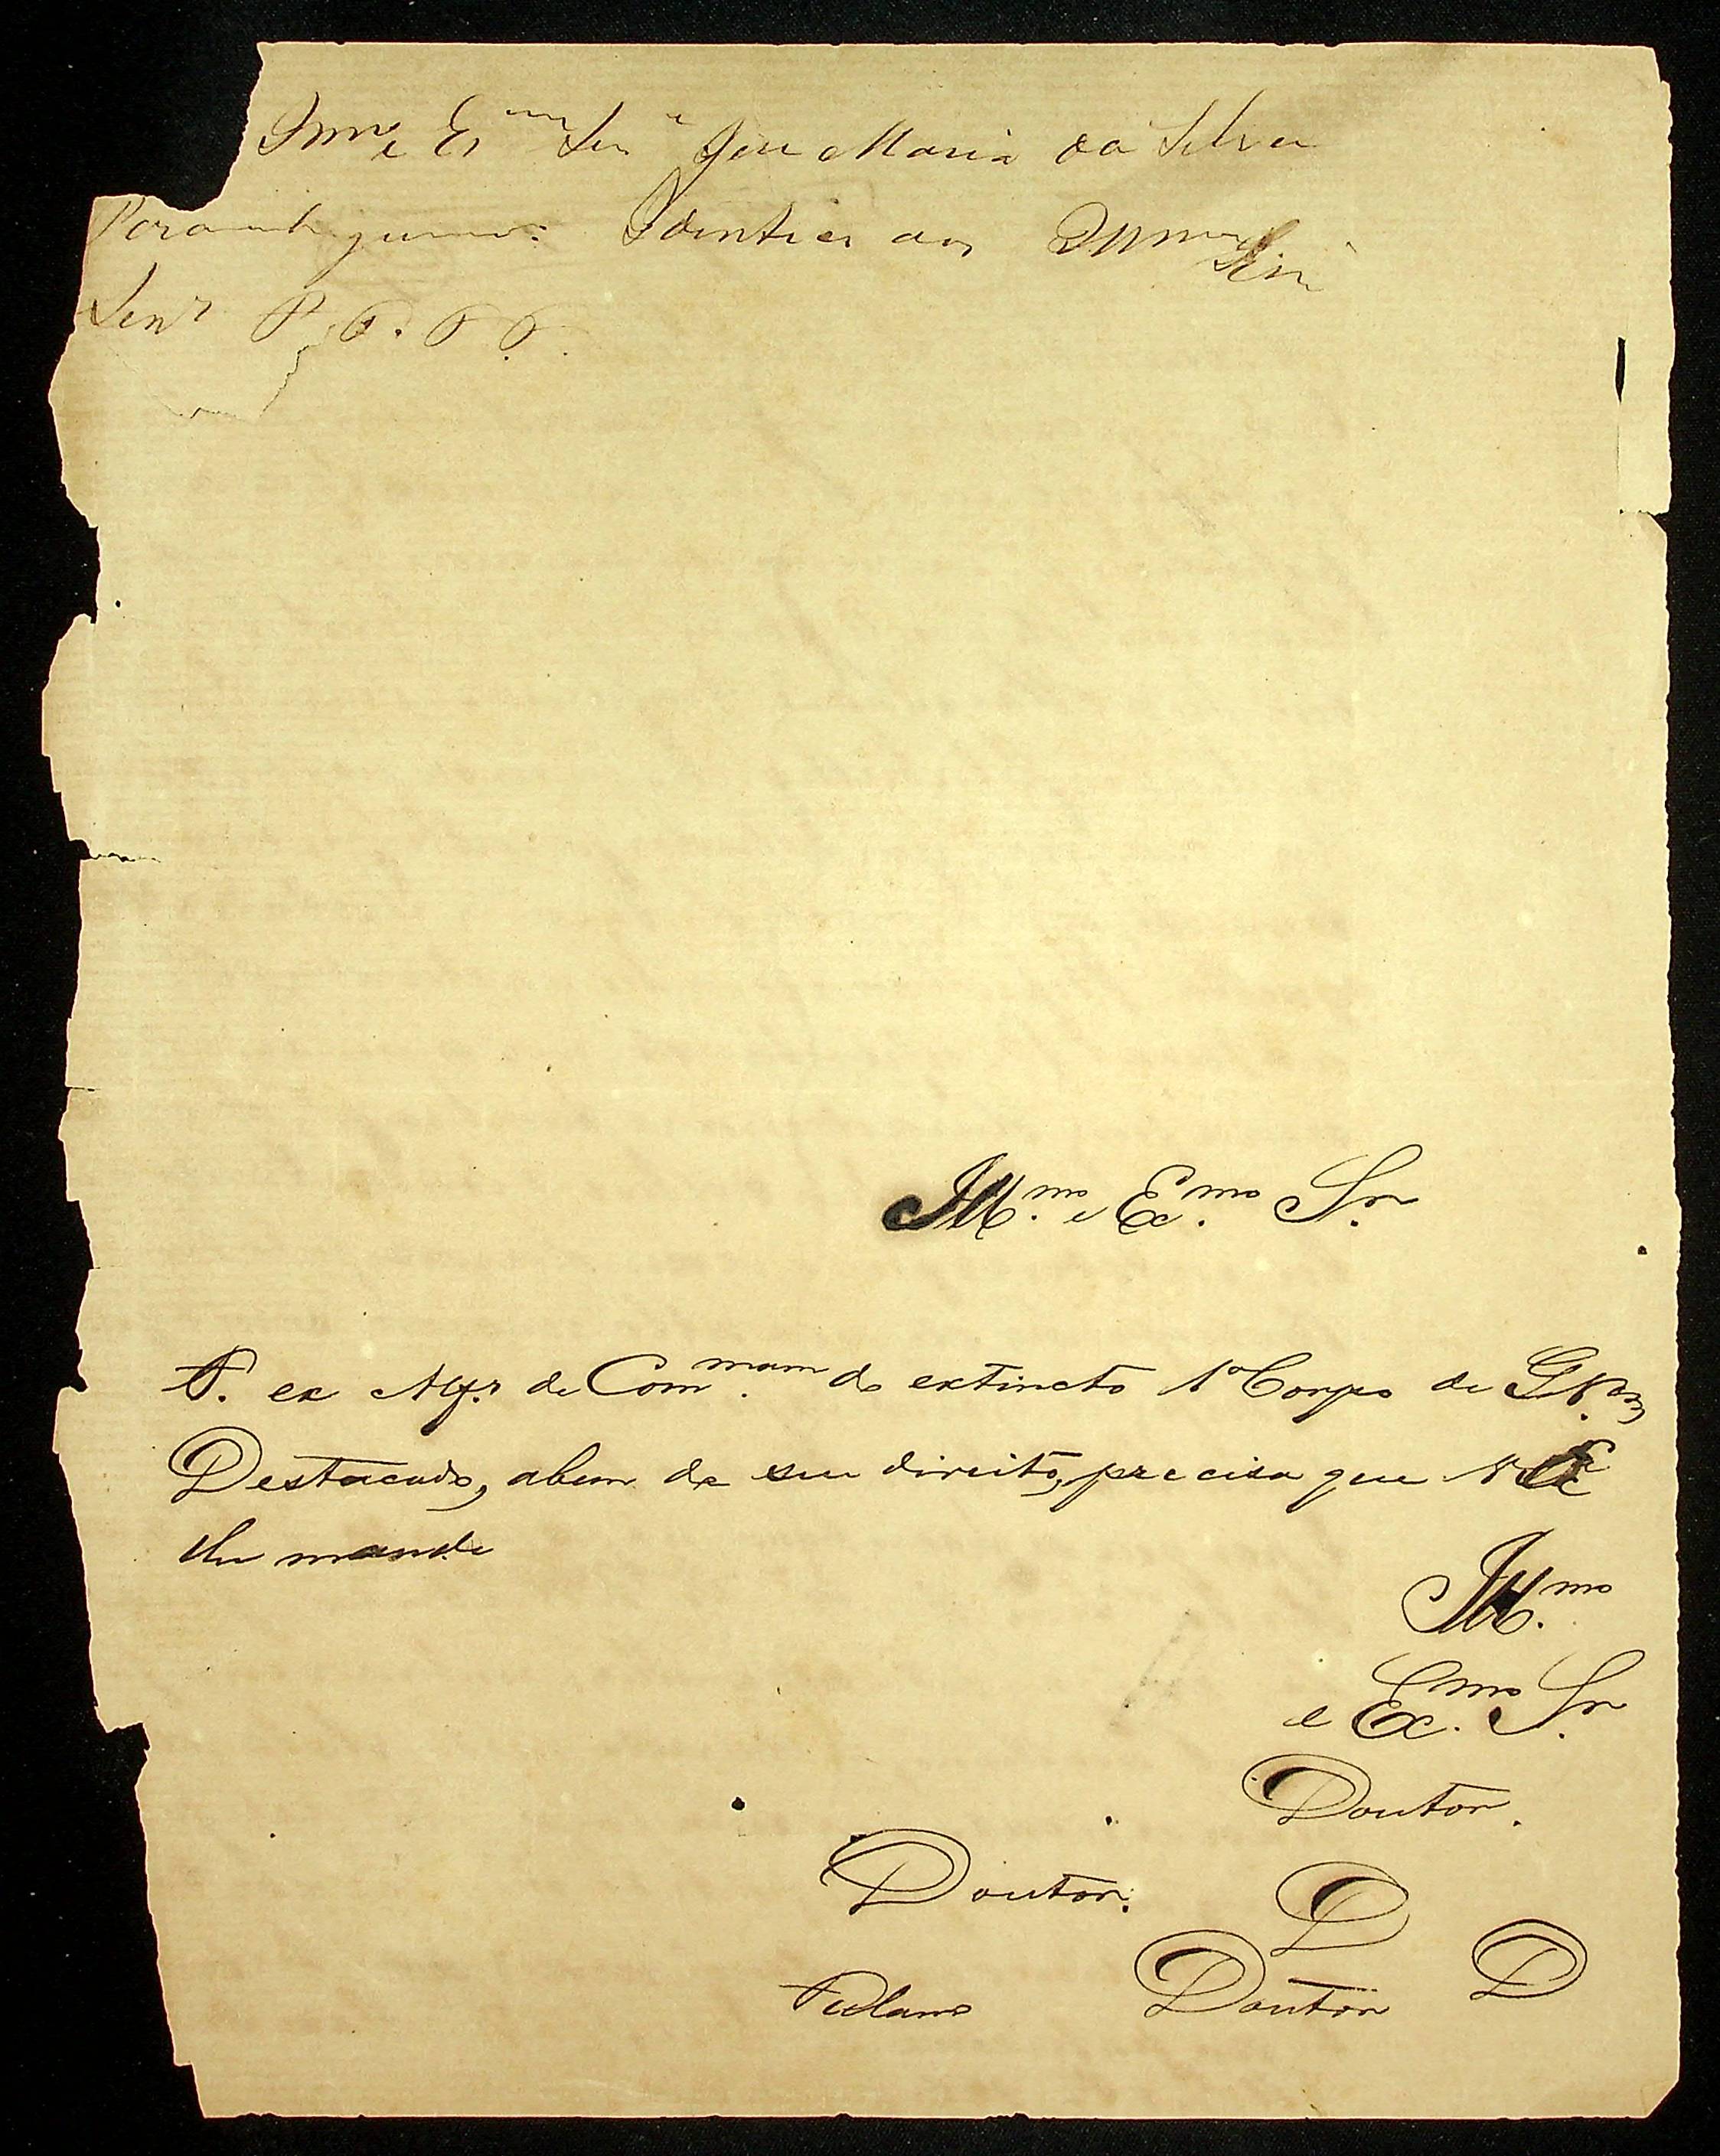 Illmo e Exmo Senr José Maria da Silva
Paranhos
Senr P. P. P. P.
Illmo e Exmo Snr
F. ex Alfs de Commam do extincto 1º Corpo de GN
Destacado, abem de seu direito, precisa que V Ex
lhe mande
Illmo
e Exmo Snr
Doutor.
Doutor.
D
Fullano Doutor D